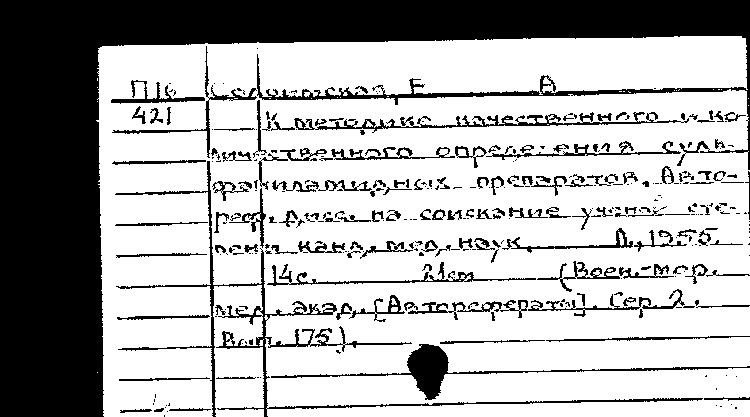 П16 Е А
421 К методике качественного и ко-
личественного определения суль-
фаниламидных препаратов. Авто-
реф. дисс. на соискание ученой сте-
пени канд. мед. наук. Л., 1955.
14с. 21см (Воен.-мор.
мед. акад. [Авторефераты]. Сер. 2.
Вып. 175).